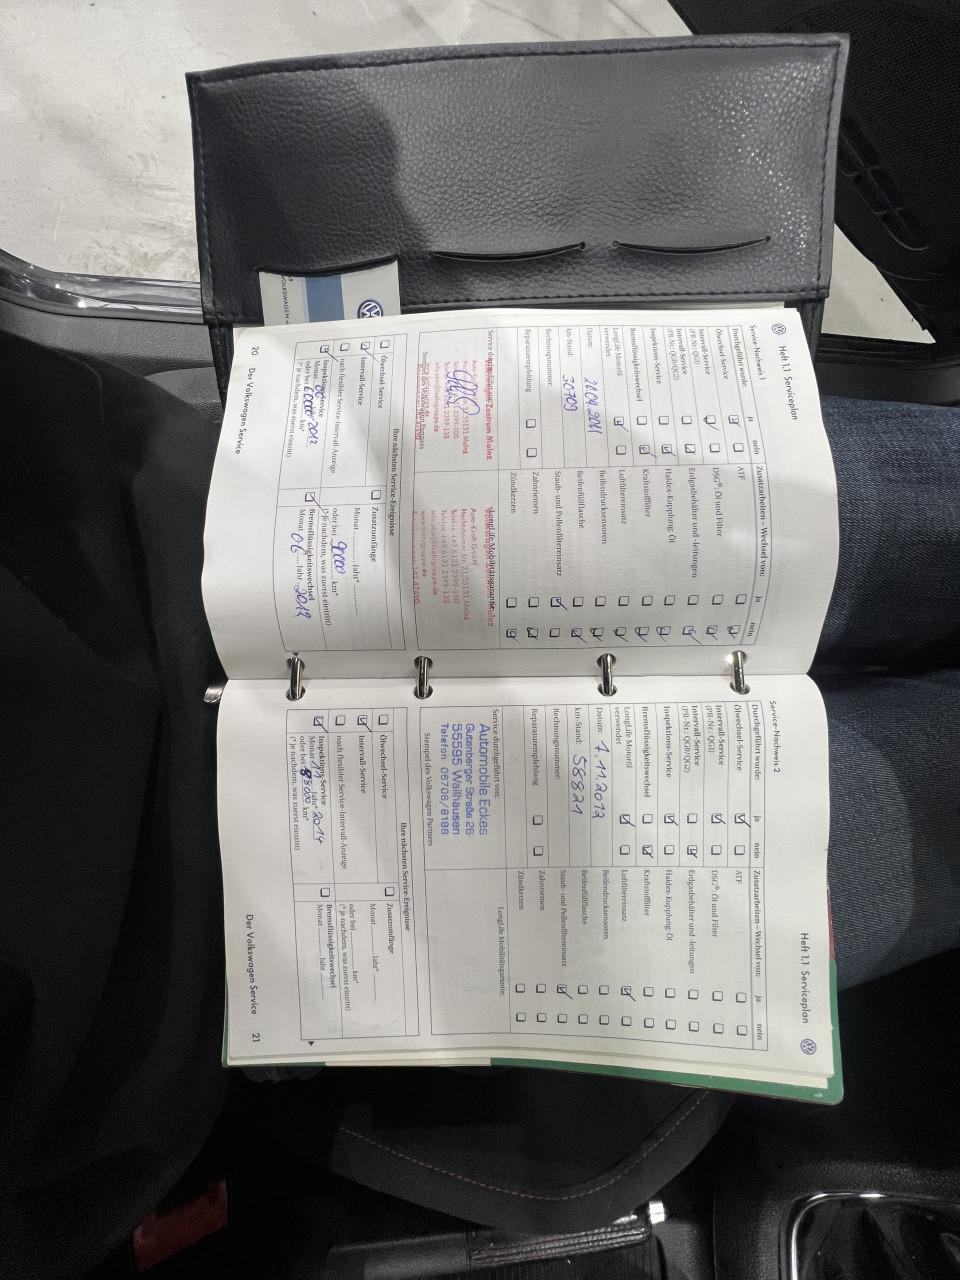 Heft 1.1 Serviceplan
Service-Nachweis 1
Durchgeführt wurde:
ja
nein
Ölwechsel-Service
Intervall-Service
(PR-Nr.: QG1)
Intervall-Service
(PR-Nr.: QG0/QG2)
Inspektions-Service
Bremsflüssigkeitswechsel
LongLife Motoröl
verwendet
Datum:
km-Stand: 30709
Rechnungsnummer:
Reparaturempfehlung
Zusatzarbeiten – Wechsel von:
ja
nein
ATF
DSG®: Öl und Filter
Erdgasbehälter und -leitungen
Haldex-Kupplung: Öl
Kraftstofffilter
Luftfiltereinsatz
Reifendrucksensoren
Reifenfüllflasche
Staub- und Pollenfiltereinsatz
Zahnriemen
Zündkerzen
Service durchgeführt von:
Stempel des Volkswagen Partners
LongLife Mobilitätsgarantie:
Auto-Kraft GmbH
55131 Mainz
Telefon +49 6131 2399-100
Telefax +49 6131 2399-135
Ihre nächsten Service-Ereignisse
Ölwechsel-Service
Intervall-Service
nach flexibler Service-Intervall-Anzeige
Inspektions-Service
Monat 06 Jahr* 2012
oder bei 60000 km*
(* je nachdem, was zuerst eintritt)
Zusatzumfänge
Monat Jahr*
oder bei 90000 km*
(* je nachdem, was zuerst eintritt)
Bremsflüssigkeitswechsel
Monat 06 Jahr
20
Der Volkswagen Service
VOLKSWAGEN
Service-Nachweis 2
Heft 1.1 Serviceplan
Durchgeführt wurde:
ja
nein
Ölwechsel-Service
Intervall-Service
(PR-Nr.: QG1)
Intervall-Service
(PR-Nr.: QG0/QG2)
Inspektions-Service
Bremsflüssigkeitswechsel
LongLife Motoröl
verwendet
Datum: 7.11.2012
km-Stand: 58821
Rechnungsnummer:
Reparaturempfehlung
Zusatzarbeiten – Wechsel von:
ja
nein
ATF
DSG®: Öl und Filter
Erdgasbehälter und -leitungen
Haldex-Kupplung: Öl
Kraftstofffilter
Luftfiltereinsatz
Reifendrucksensoren
Reifenfüllflasche
Staub- und Pollenfiltereinsatz
Zahnriemen
Zündkerzen
Service durchgeführt von:
Automobile Eckes
Gutenberger Straße 26
55595 Wallhausen
Telefon 06706/8198
Stempel des Volkswagen Partners
LongLife Mobilitätsgarantie:
Ihre nächsten Service-Ereignisse
Ölwechsel-Service
Intervall-Service
nach flexibler Service-Intervall-Anzeige
Inspektions-Service
Monat 11 Jahr* 2014
oder bei 88000 km*
(* je nachdem, was zuerst eintritt)
Zusatzumfänge
Monat Jahr*
oder bei km*
(* je nachdem, was zuerst eintritt)
Bremsflüssigkeitswechsel
Monat Jahr
Der Volkswagen Service
21